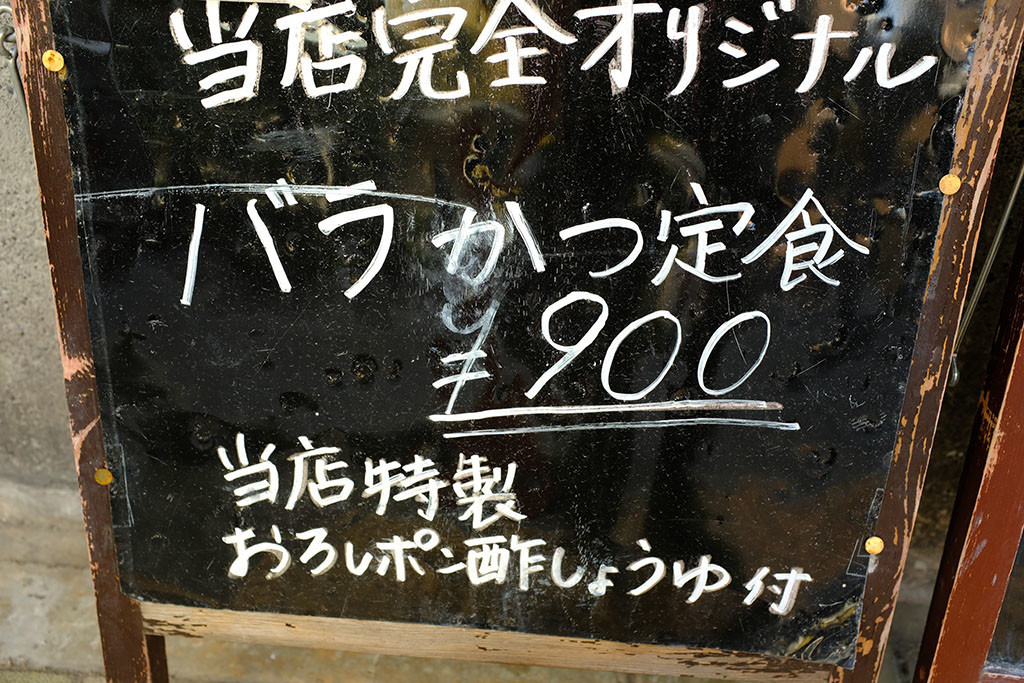 当店完全オリジナル
バラかつ定食
¥900
当店特製
おろしポン酢しょうゆ付